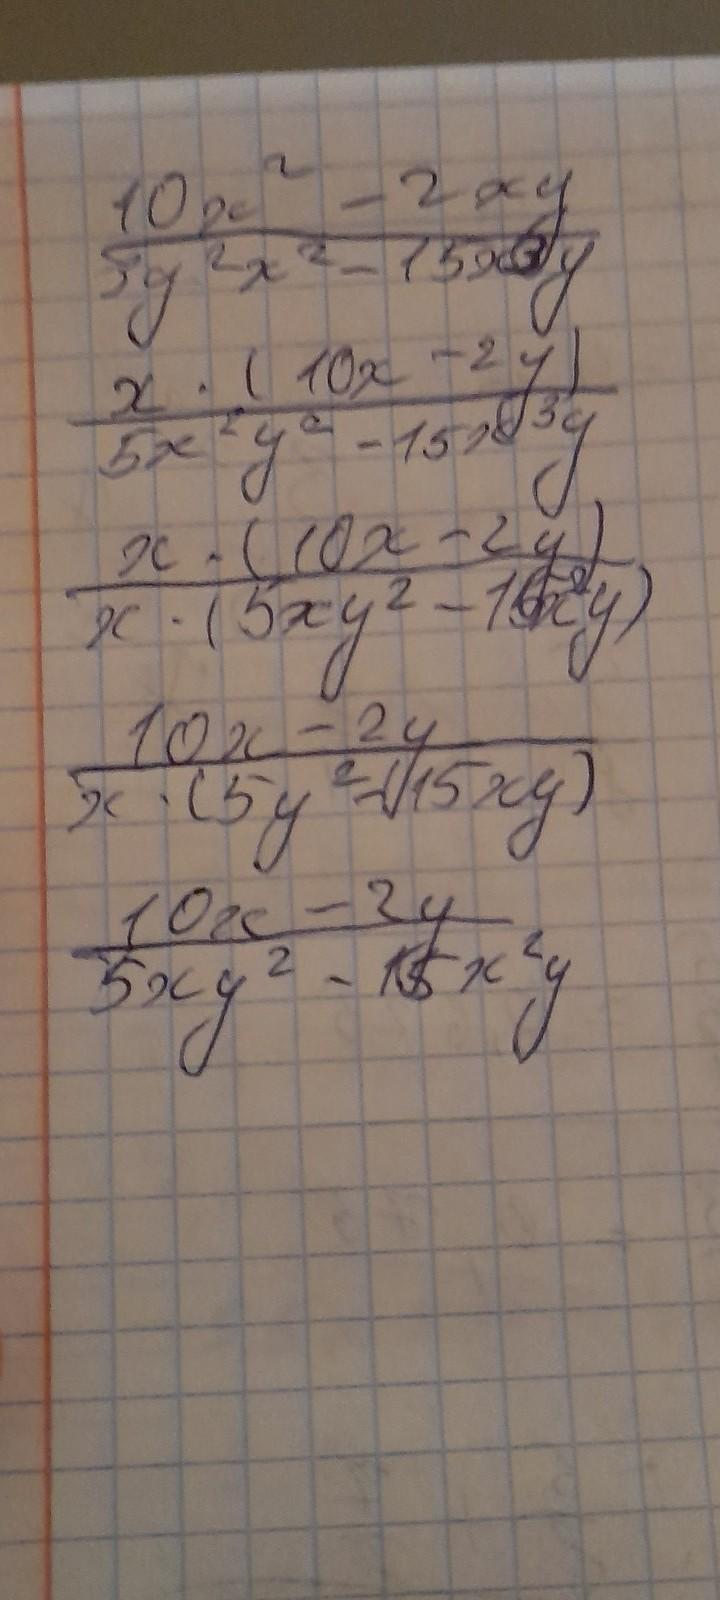 10x² - 2xy
5y²x² - 15x³y
x · (10x - 2y)
5x²y² - 15x³y
x · (10x - 2y)
x · (5xy² - 15x²y)
10x - 2y
x · (5y² - 15xy)
10x - 2y
5xy² - 15x²y